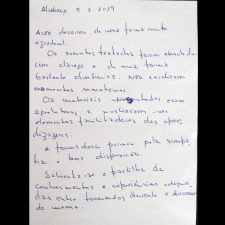 Alcobaça 9.3.2019
Ação decorreu de uma forma muito
agradável.
Os assuntos tratados foram abordados
com clareza e de uma forma
bastante dinâmica. Não existiram
momentos monótonos.
Os materiais apresentados eram
apelativos e mostraram-se
elementos facilitadores das apren
dizagens.
A formadora primou pela simpa
tia e boa disposição.
Salienta-se a partilha de
conhecimentos e experiências
das entre formandos durante o decorrer
da mesma.